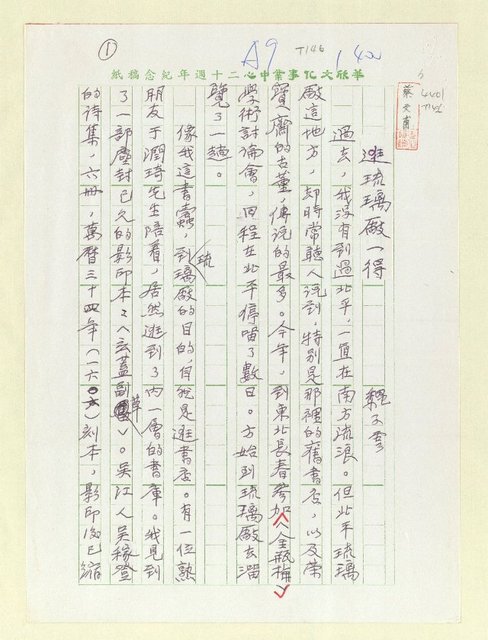 ①
A9
T146
華欣文化事業中心二十週年紀念稿紙
逛琉璃廠一得
魏子雲
過去,我沒有到過北平,一直在南方流浪。但北平琉璃
廠這地方,却時常聽人説到,特别是那裡的舊書店,以及榮
寶齋的古董,傳説的最多。今年,到東北長春參加《金瓶梅》
學術討論會,回程在北平停留了數日。方始到琉璃廠去溜
覽了一趟。
像我這書蠹,到琉璃廠的目的,自然是逛書店。有一位熟
朋友于潤琦先生陪着,居然逛到了內一層的書庫。我見到
了一部塵封已久的影印本《玄蓋副草》。吳江人吳稼竳
的詩集,六冊,萬曆三十四年(一六〇六)刻本,影印後已縮